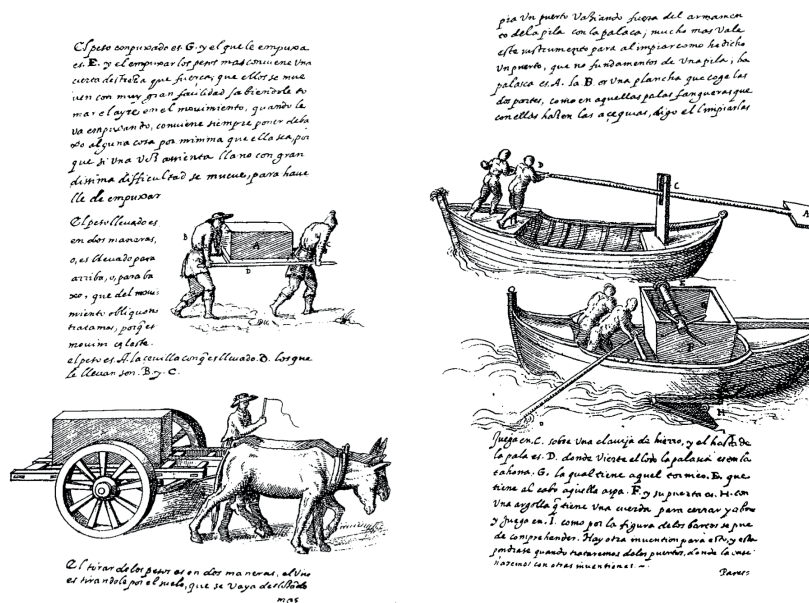 El peso conpuxado es G. y el que le empuxa
es. E. y el empuxar los pesos mas conuiene una
cierta destreza que fuerça; que ellos se mue
uen con muy gran facilidad sabiendole to
mar el ayre en el mouimiento, quando le
va conpuxando, conuiene siempre poner deba
xo alguna cosa por minima que ella sea, por
que si una vez assienta llano con gran
dissima difficultad se mueue, para haue
lle de empuxar
El peso lleuado es
en dos maneras,
o, es lleuado para
arriba, o, para ba
xo, que del moui
miento obliquo no
tratamos, porq̃ es
mouim
el peso es. A. la ceuilla con q̃ es lleuado. D. los que
le lleuan son. B. y. C.
B
A
D
El tirar de los pesos es en dos maneras, el uno
es tirandolo por el suelo, que se vaya
mas
pia un puerto vaziando fuera del armamen
to de la pila con la palaca; mucho mas vale
este instrumento para alimpiar como he dicho
un puerto, que no fundamentos de una pila; ha
palasca es. A. la B. es una plancha que coge las
dos partes, como en aquellas palas fangueras que
con ellas hazen las acequias, digo el limpiarlas
D
C
A
E
F
H
Juega en. C. sobre una clauija de hierro, y el hasta de
la pala es. D. donde vierte el lodo la palasca es en la
tahona. G. la qual tiene aquel torno. E. que
tiene al cabo aquella aspa. F. y su puerta es. H. con
una argolla q̃ tiene una cuerda para cerrar y abrir
y juega en. I. como por la figura de los barcos se pue
de comprehender. Hay otra inuention para esto, y esta
pondrase quando trataremos de los puertos, donde la
con otras inuentiones. ~
Pares